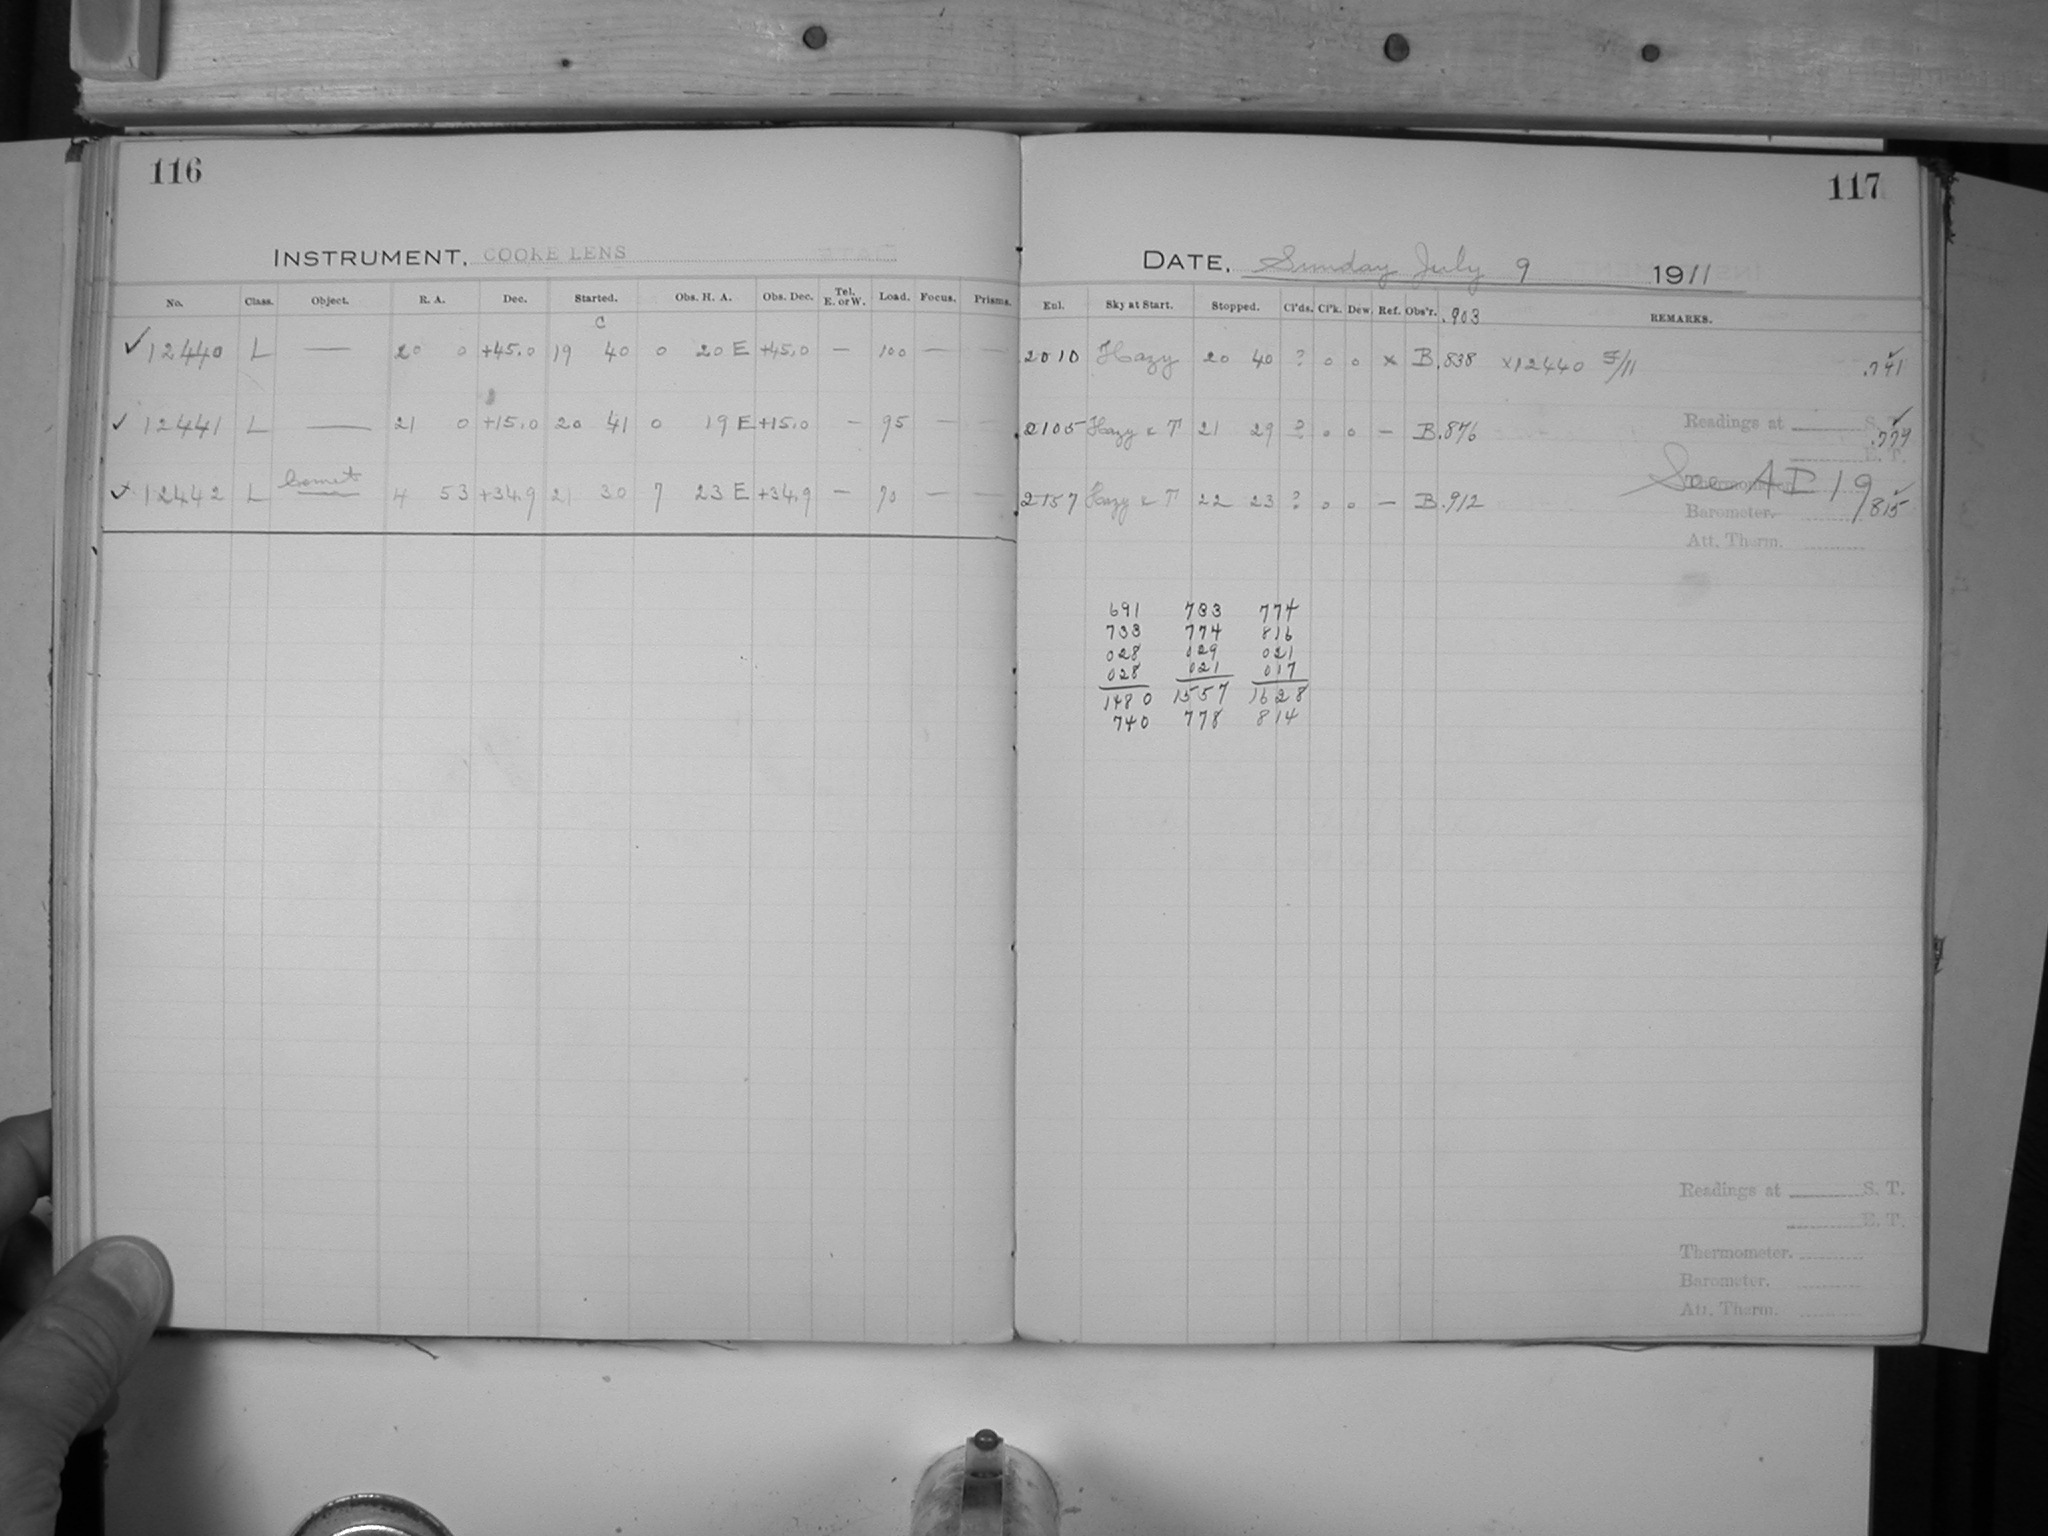 116
INSTRUMENT, COOKE LENS
No. Class. Object. R. A. Dec. Started. Obs. H. A. Obs. Dec. Tel. E. or W. Load. Focus. Prisms.
C
✓ 12440 L — 20 0 +45.0 19 40 0 20 E +45.0 — 100 — —
✓ 12441 L — 21 0 +15.0 20 41 0 19 E +15.0 — 95 — —
✓ 12442 L Comet 4 53 +34.9 21 30 7 23 E +34.9 — 70 — —
117
DATE, Sunday July 9 1911
Enl. Sky at Start. Stopped. Cl'ds. Cl'k. Dew. Ref. Obs'r. .903 REMARKS.
2010 Hazy 20 40 ? 0 0 x B .838 x12440 .741
2105 Hazy & T 21 29 ? 0 0 — B .876 .779
2157 Hazy & T 22 23 ? 0 0 — B .912 815
Readings at S. T.
E. T.
See AI 19
Thermometer.
Barometer.
Att. Therm.
691 733 774
733 774 816
028 029 021
028 021 017
1480 1557 1628
740 778 814
Readings at S. T.
E. T.
Thermometer.
Barometer.
Att. Therm.